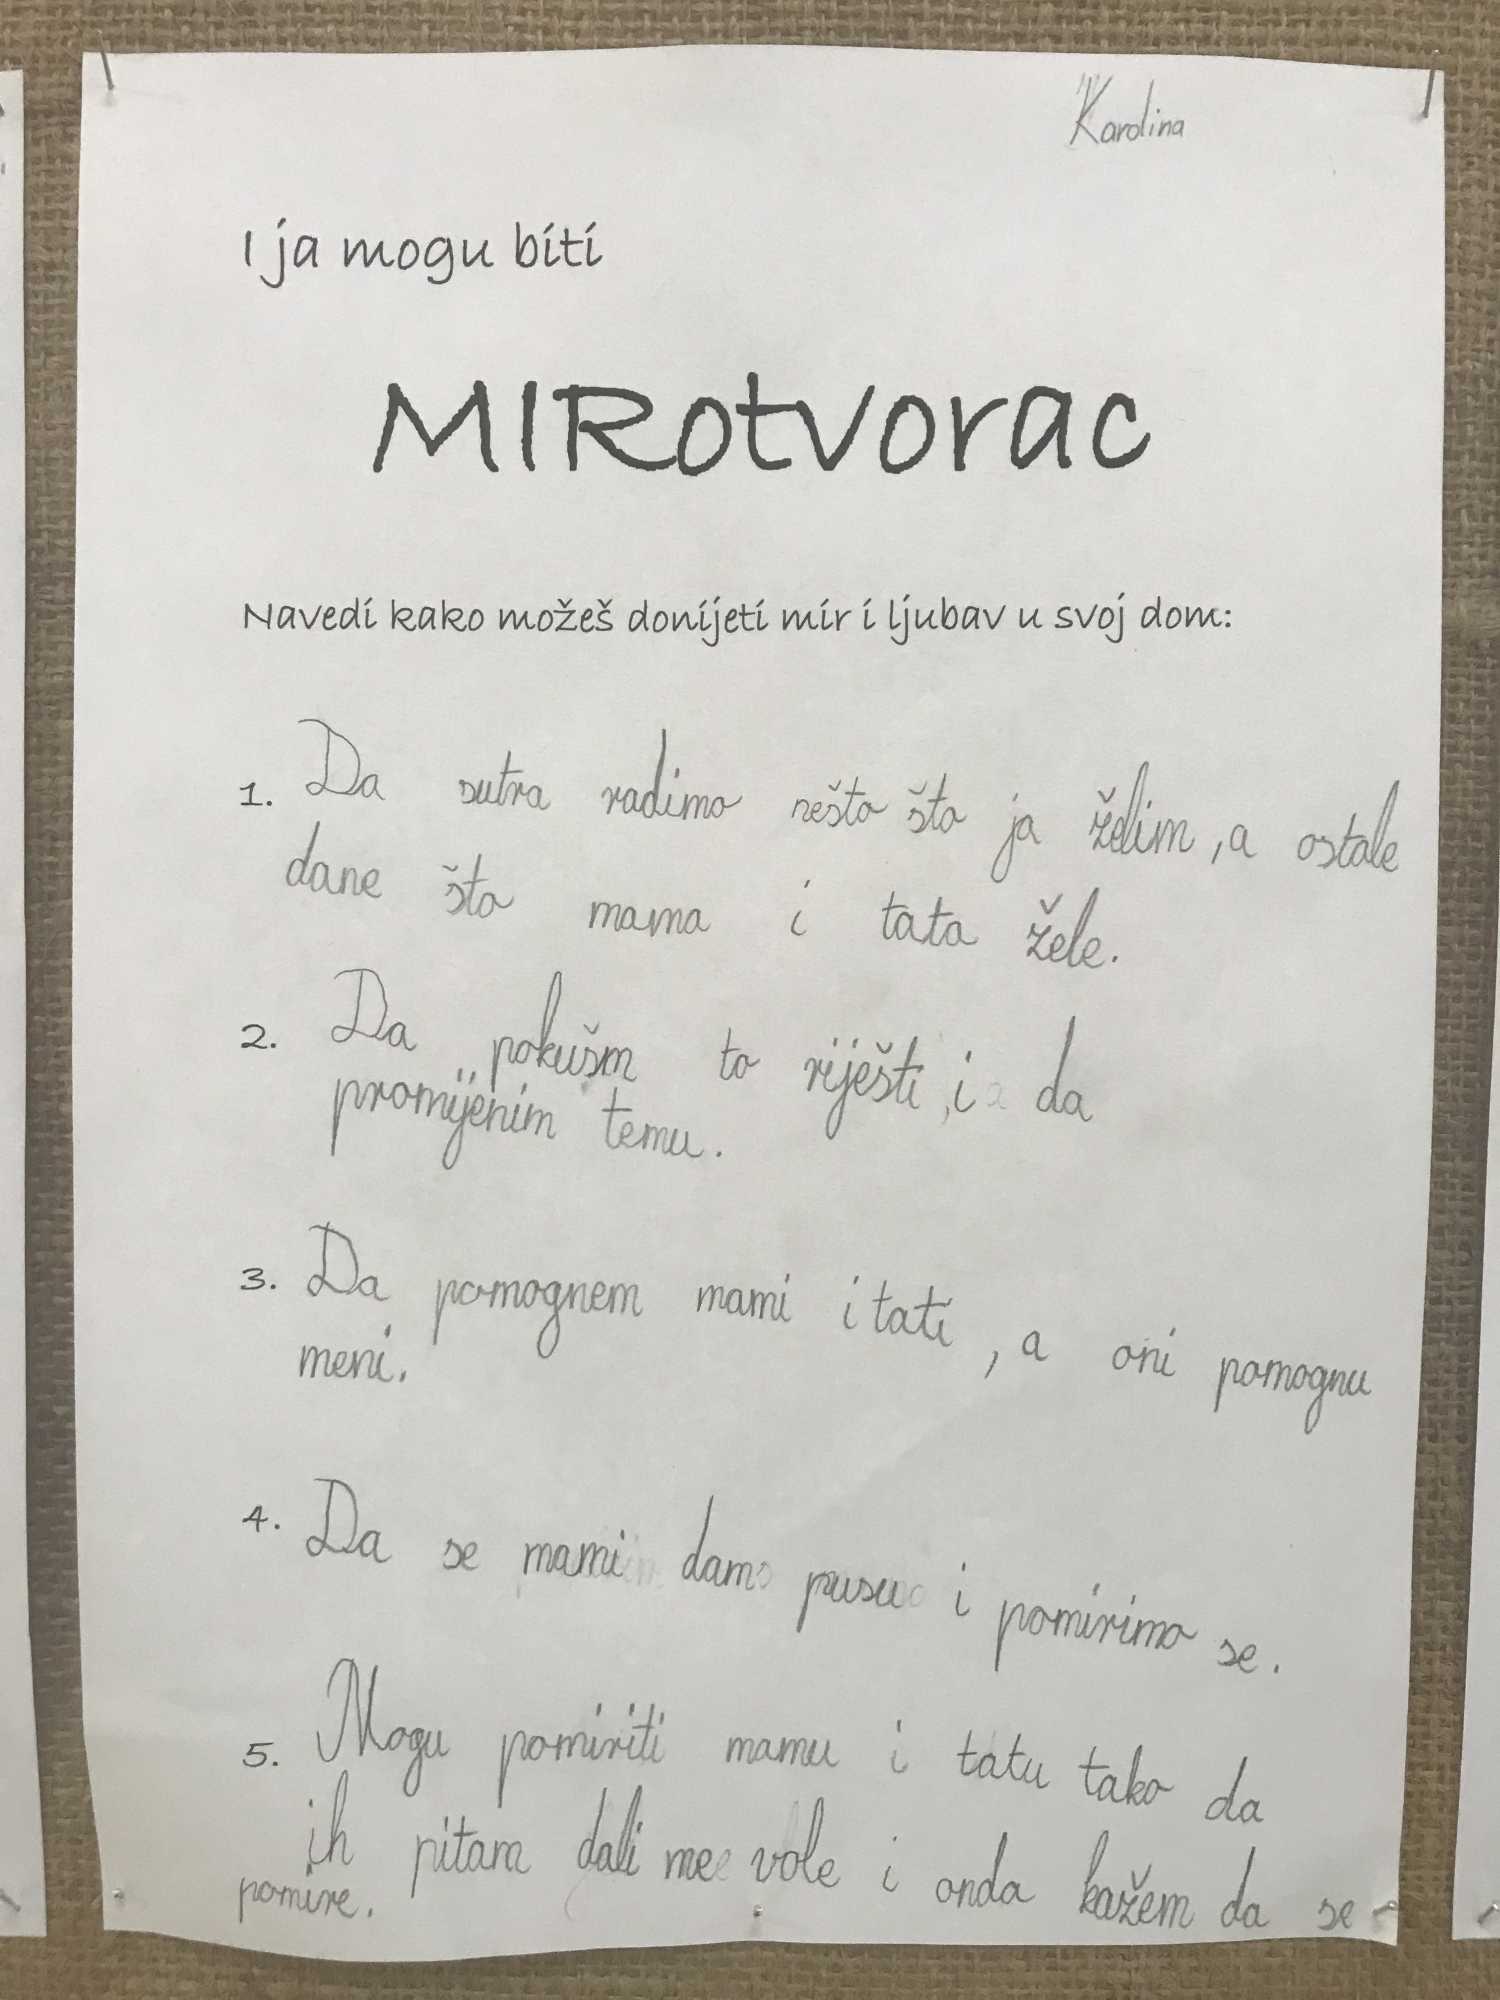 Karolina
I ja mogu biti
MIROtvorac
Navedi kako možeš donijeti mir i ljubav u svoj dom:
1. Da sutra radimo nešto što ja želim, a ostale
dane što mama i tata žele.
2. Da pokušm to riješti, i da
promijenim temu.
3. Da pomognem mami i tati, a oni pomognu
meni.
4. Da se mami dam pusu i pomirimo se.
5. Mogu pomiriti mamu i tatu tako da
ih pitam dali me vole i onda kažem da se
pomire.